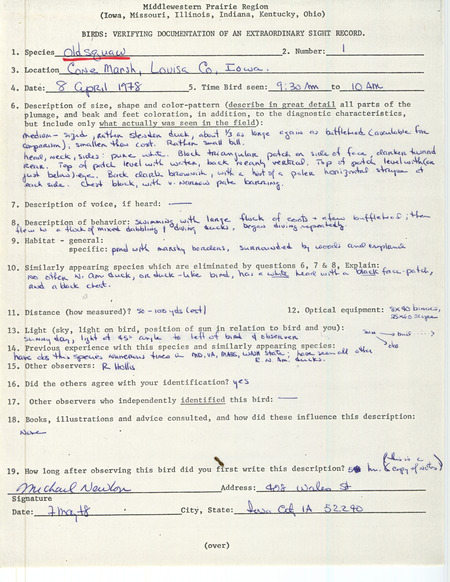 Middlewestern Prairie Region
(Iowa, Missouri, Illinois, Indiana, Kentucky, Ohio)
BIRDS: VERIFYING DOCUMENTATION OF AN EXTRAORDINARY SIGHT RECORD.
1. Species Oldsquaw 2. Number: 1
3. Location Cone Marsh, Louisa Co, Iowa.
4. Date: 8 April 1978 5. Time Bird seen: 9:30 Am to 10 Am
6. Description of size, shape and color-pattern (describe in great detail all parts of the
plumage, and beak and feet coloration, in addition, to the diagnostic characteristics,
but include only what actually was seen in the field):
medium-sized, rather slender duck, about 1/3 as large again as bufflehead (available for
comparison), smaller than coot. Rather small bill.
head, neck, sides: pure white. Black triangular patch on side of face, darker toward
rear. Top of patch level with
just below) eye. Back dark brownish, with a hint of a paler horizontal stripe at
each side. Chest black, with v. narrow pale barring.
7. Description of voice, if heard: —
8. Description of behavior: swimming with large flock of coots + a few bufflehead; then
flew to a flock of mixed dabbling & diving ducks, began diving repeatedly.
9. Habitat - general:
specific: pond with marshy borders, surrounded by woods and
10. Similarly appearing species which are eliminated by questions 6, 7 & 8, Explain:
no other N. Am duck, or duck-like bird, has a white head with a black face-patch,
and a black chest.
11. Distance (how measured)? 50-100 yds (est) 12. Optical equipment: 8x40 binocs,
scope
13. Light (sky, light on bird, position of sun in relation to bird and you):
sunny day, light at 45° angle to left of bird & observer
sun bird
obs
14. Previous experience with this species and similarly appearing species:
have obs this species numerous times in MD, VA, MASS, WASH State; have seen all other
N. Am. ducks.
15. Other observers: R Hollis
16. Did the others agree with your identification? yes
17. Other observers who independently identified this bird: —
18. Books, illustrations and advice consulted, and how did these influence this description:
None
19. How long after observing this bird did you first write this description? hr. (this is a
copy of notes)
Michael Newlon Address: 408 Wales St
Signature
Date: 7 May 78 City, State: Iowa City IA 52240
(over)